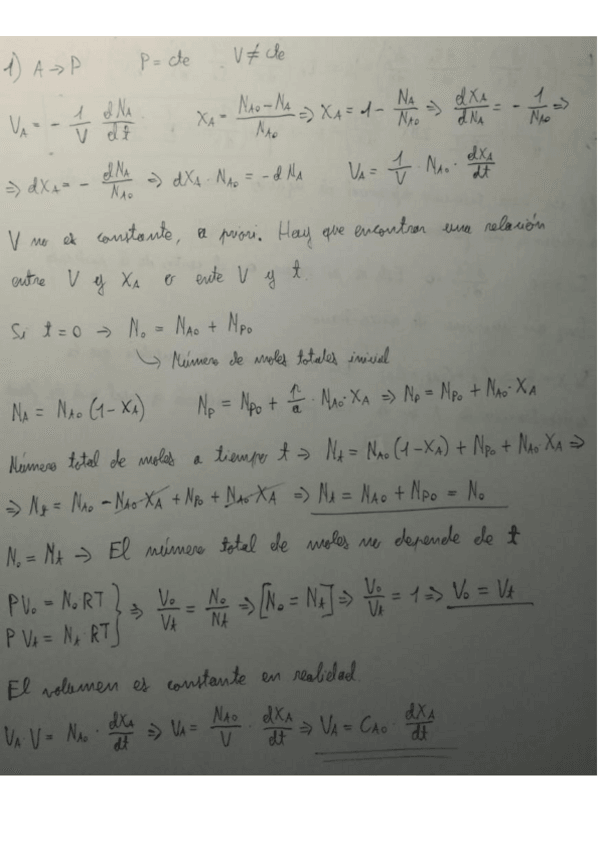 1) A → P P = cte V ≠ cte
V_A = - 1/V dN_A/dt X_A = (N_A0 - N_A)/N_A0 ⇒ X_A = 1 - N_A/N_A0 ⇒ dX_A/dN_A = - 1/N_A0 ⇒
⇒ dX_A = - dN_A/N_A0 ⇒ dX_A · N_A0 = - dN_A V_A = 1/V · N_A0 · dX_A/dt
V no es constante, a priori. Hay que encontrar una relación
entre V y X_A o ente V y t
Si t = 0 → N_0 = N_A0 + N_P0
↳ Número de moles totales inicial
N_A = N_A0 (1 - X_A) N_P = N_P0 + p/a · N_A0 · X_A ⇒ N_P = N_P0 + N_A0 · X_A
Número total de moles a tiempo t ⇒ N_t = N_A0 (1 - X_A) + N_P0 + N_A0 · X_A ⇒
⇒ N_t = N_A0 - N_A0 · X_A + N_P0 + N_A0 · X_A ⇒ N_t = N_A0 + N_P0 = N_0
N_0 = N_t ⇒ El número total de moles no depende de t
PV_0 = N_0 · RT
PV_t = N_t · RT } ⇒ V_0/V_t = N_0/N_t ⇒ [N_0 = N_t] ⇒ V_0/V_t = 1 ⇒ V_0 = V_t
El volumen es constante en realidad.
V_A · V = N_A0 · dX_A/dt ⇒ V_A = N_A0/V · dX_A/dt ⇒ V_A = C_A0 · dX_A/dt